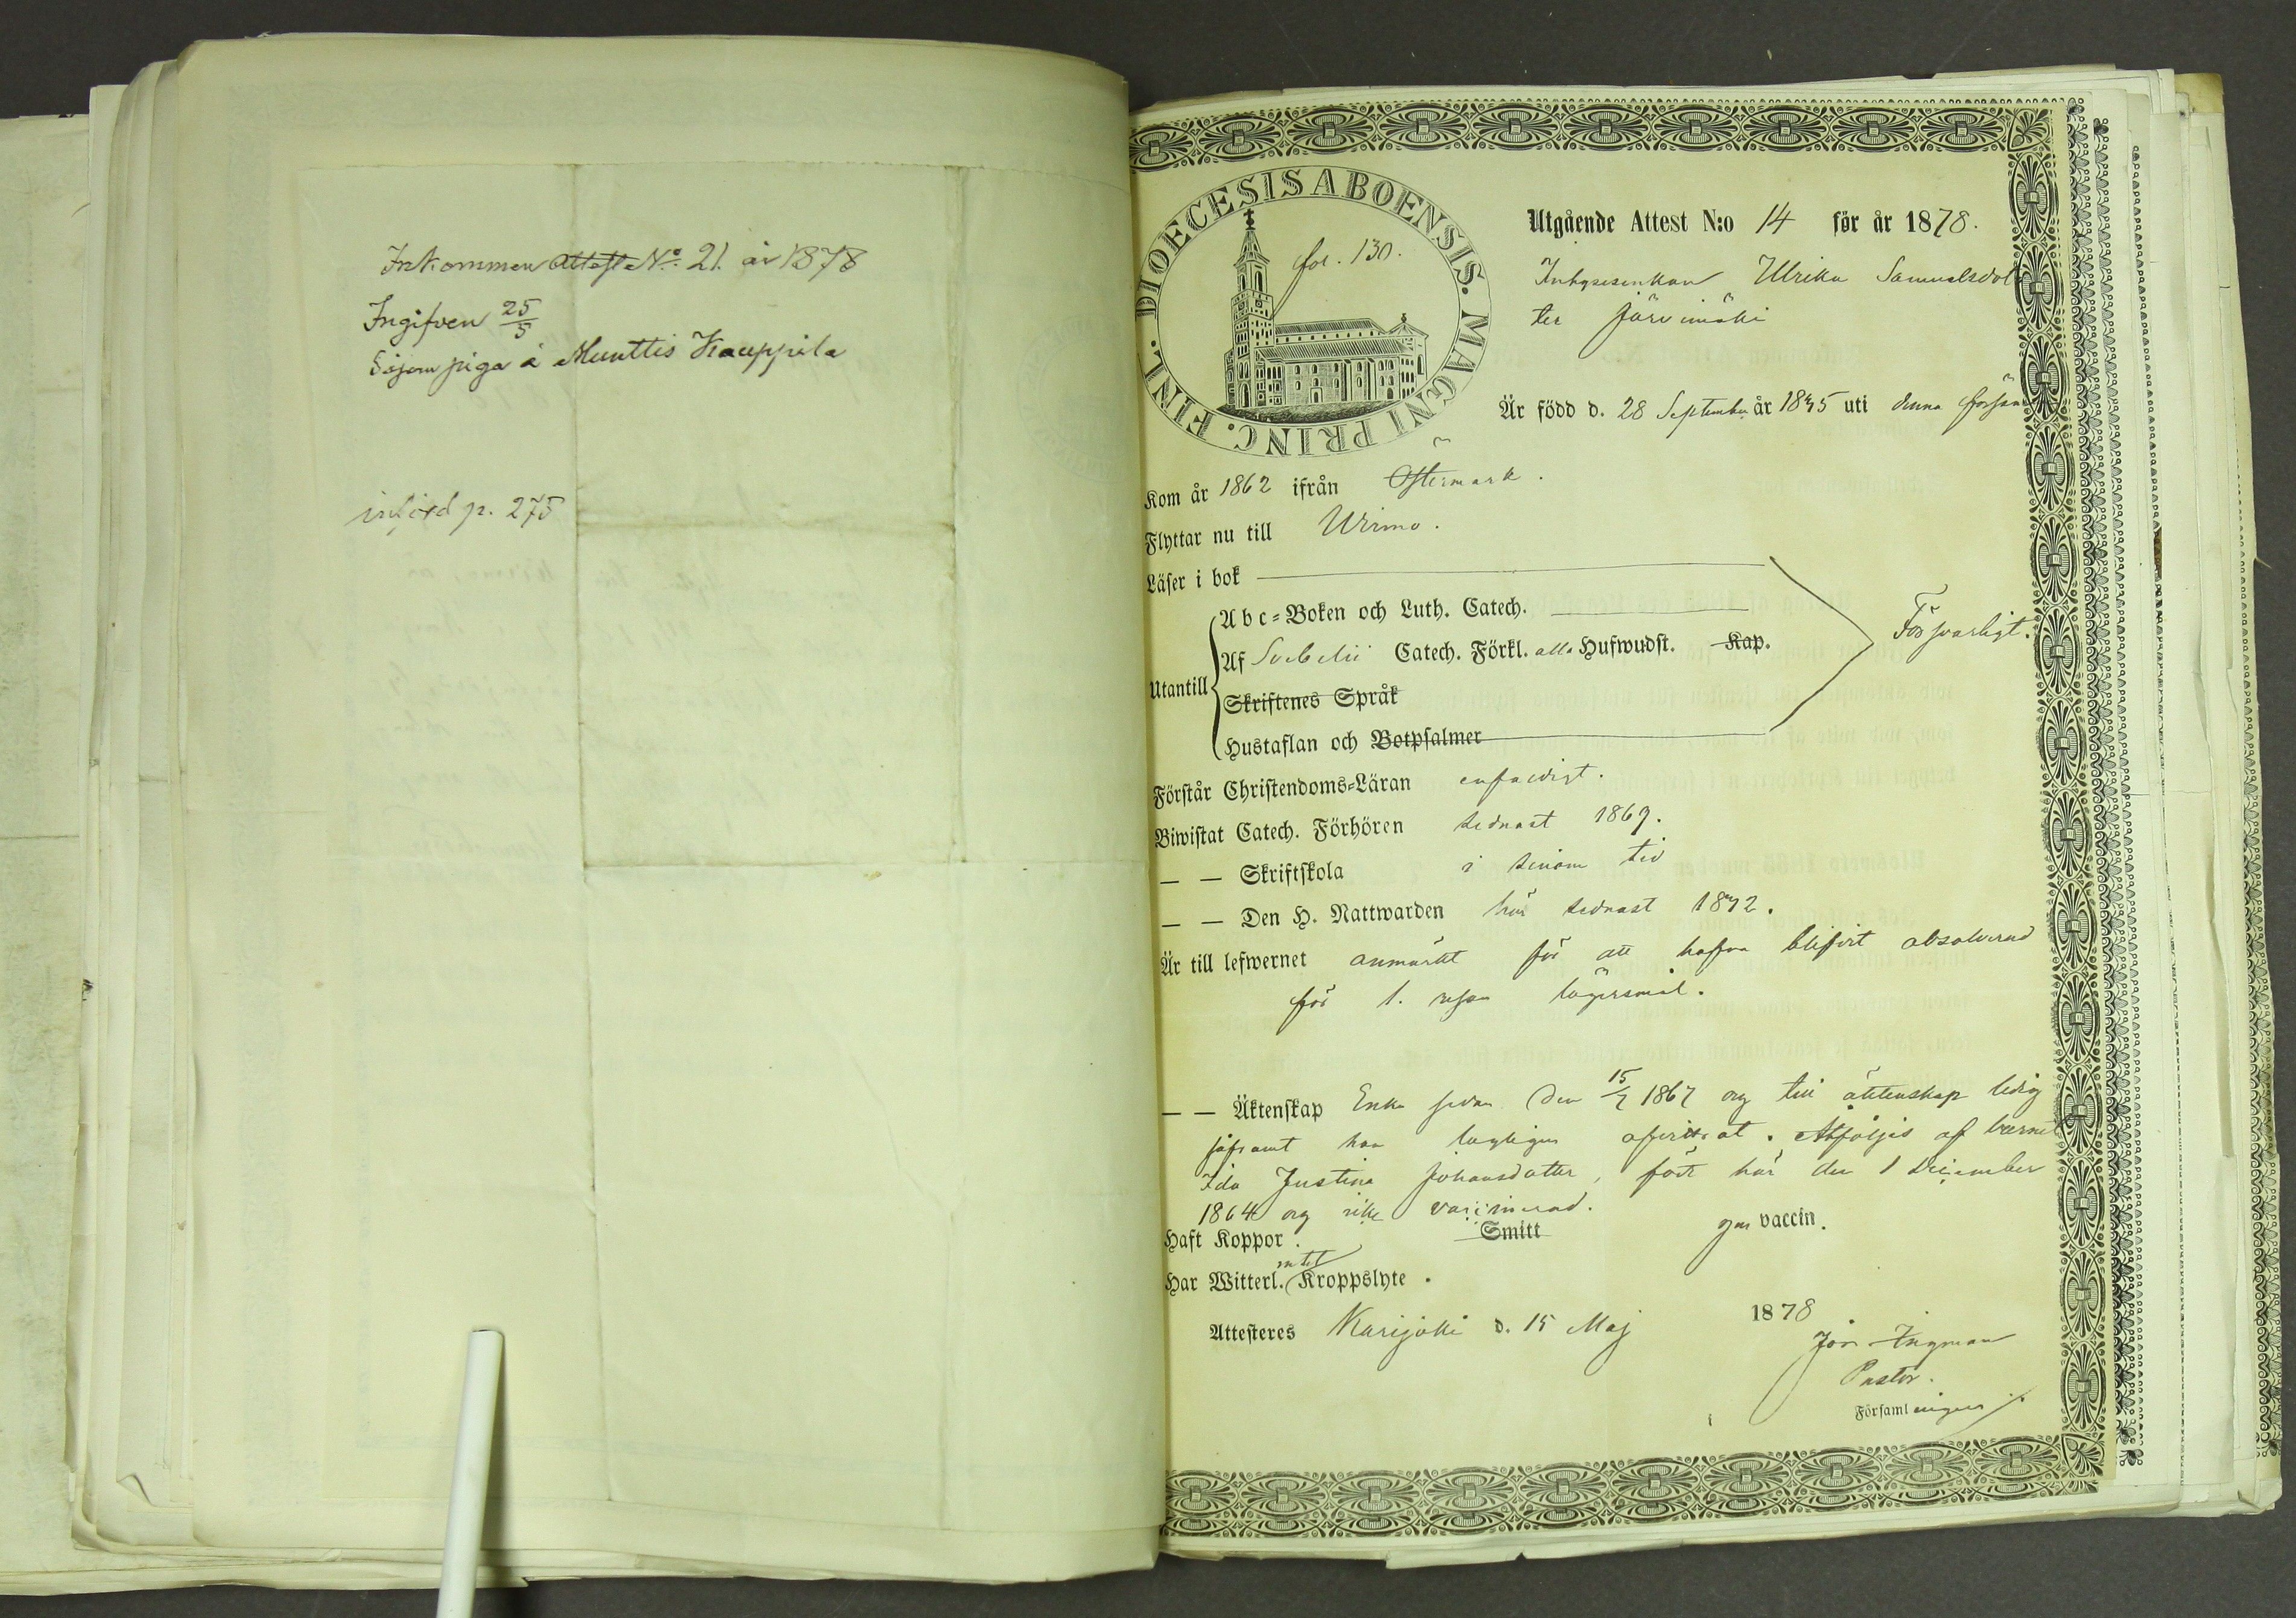 Inkommen Attest No. 21. år 1878
Ingifven 25/5
Såsom piga å Munttis Kauppila
införd p. 275
DIOECESIS ABOENSIS. MAGNI PRINC. FINL.
fol. 130.
Utgående Attest N:o 14 för år 1878.
Inhysesenkan Ulrika Samuelsdot
ter Järvimäki
Är född d. 28 September år 1835 uti denna förs
Kom år 1862 ifrån Östermark.
Flyttar nu till Wirmo.
Läser i bok
Abc=Boken och Luth. Catech.
Försvarligt.
Utantill
Af Svebelii Catech. Förkl. alla Hufwudst. Kap.
Skriftenes Språk
Hustaflan och Botpsalmer
Förstår Christendoms=Läran enfaldigt.
Biwistat Catech. Förhören sednast 1869.
— — Skriftskola i sinom tid
— — Den H. Nattwarden här sednast 1872.
Är till lefwernet anmärkt för att hafva blifvit absolverad
för 1. resan lägersmål.
— — Äktenskap Enka sedan den 15/7 1867 och till äktenskap ledig
såframt hon lagligen afvittrat. Åtföljes af barnet
Ida Justina Johansdotter, född här den 1 December
1864 och icke vaccinerad.
Haft Koppor. Smitt gm vaccin.
Har Witterl. intet Kroppslyte.
Attesteres Karijoki d. 15 Maj 1878
Ingman
Pastor.
Församlingen